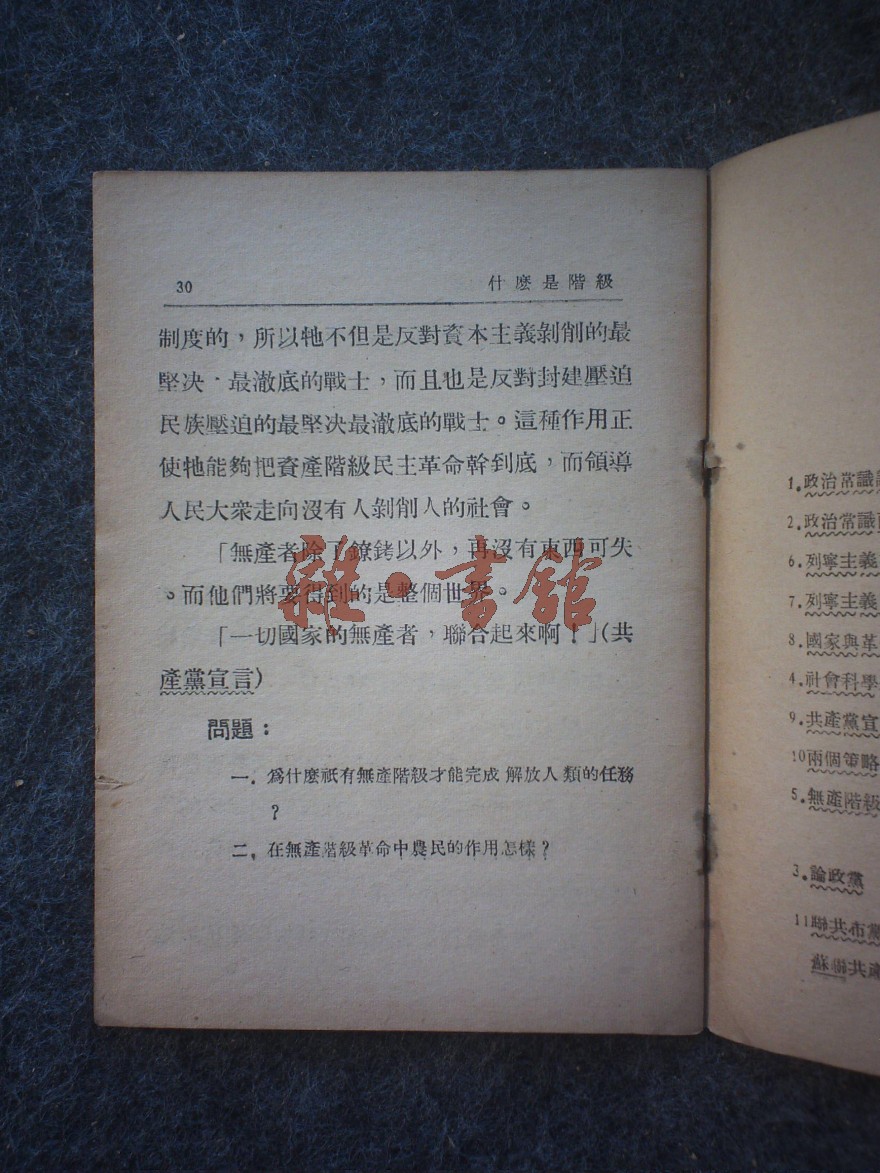 30
什麽是階級
制度的，所以牠不但是反對資本主義剝削的最
堅决・最澈底的戰士，而且也是反對封建壓迫
民族壓迫的最堅决最澈底的戰士。這種作用正
使牠能夠把資產階級民主革命幹到底，而領導
人民大衆走向沒有人剝削人的社會。
「無產者除了鐐銬以外，再沒有東西可失
。而他們將要得到的是整個世界。
「一切國家的無產者，聯合起來啊！」（共
產黨宣言）
問題：
一．爲什麽祇有無產階級才能完成 解放人類的任務
？
二．在無產階級革命中農民的作用怎樣？
雜·書館
1.政治常識
2.政治常識
6.列寧主義
7.列寧主義
8.國家與革
4.社會科學
9.共產黨宣
10兩個策略
5.無產階級
3.論政黨
11聯共布黨
蘇聯共產